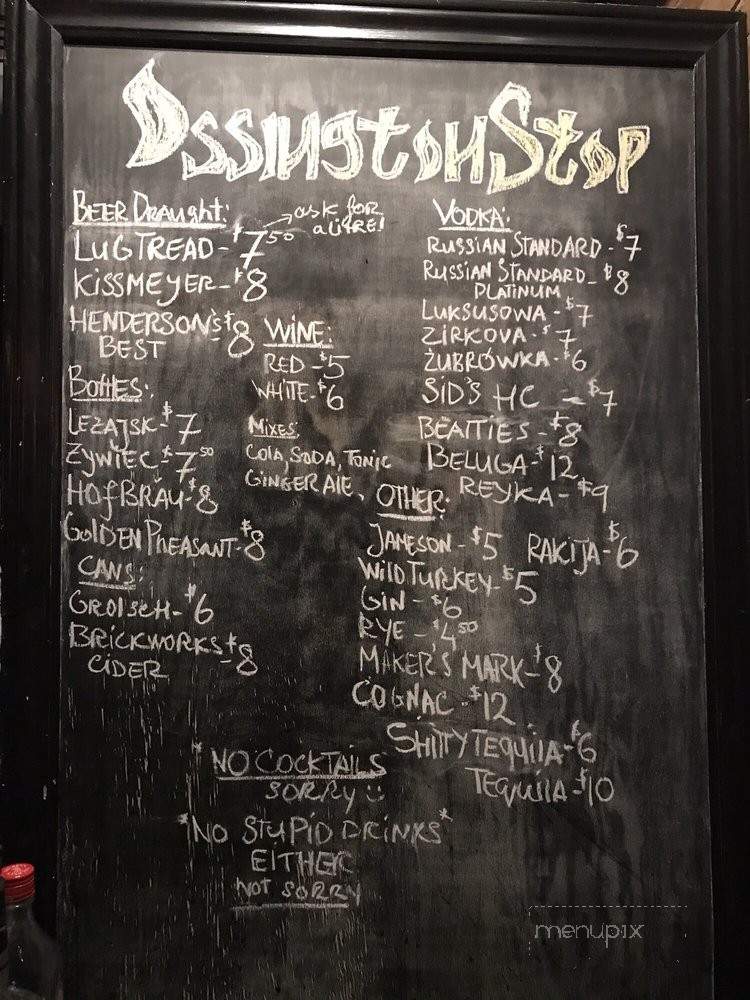 Ossington Stop
BEER DRAUGHT:
ask for
a litre!
LUG TREAD - $7.50
KISSMEYER - $8
HENDERSON'S - $8
BEST
BOTTLES:
LEZAJSK - $7
ZYWIEC - $7.50
HOFBRÄU - $8
GOLDEN PHEASANT - $8
CANS:
GROLSCH - $6
BRICKWORKS - $8
CIDER
WINE:
RED - $5
WHITE - $6
MIXES:
COLA, SODA, TONIC
GINGER ALE,
VODKA:
RUSSIAN STANDARD - $7
RUSSIAN STANDARD - $8
PLATINUM
LUKSUSOWA - $7
ZIRKOVA - $7
ŻUBRÓWKA - $6
SID'S HC - $7
BEATTIES - $8
BELUGA - $12
REYKA - $9
OTHER:
JAMESON - $5 RAKIJA - $6
WILD TURKEY - $5
GIN - $6
RYE - $4.50
MAKER'S MARK - $8
COGNAC - $12
SHITTY TEQUILA - $6
TEQUILA - $10
*NO COCKTAILS
SORRY :)
*NO STUPID DRINKS*
EITHER
NOT SORRY
menupix